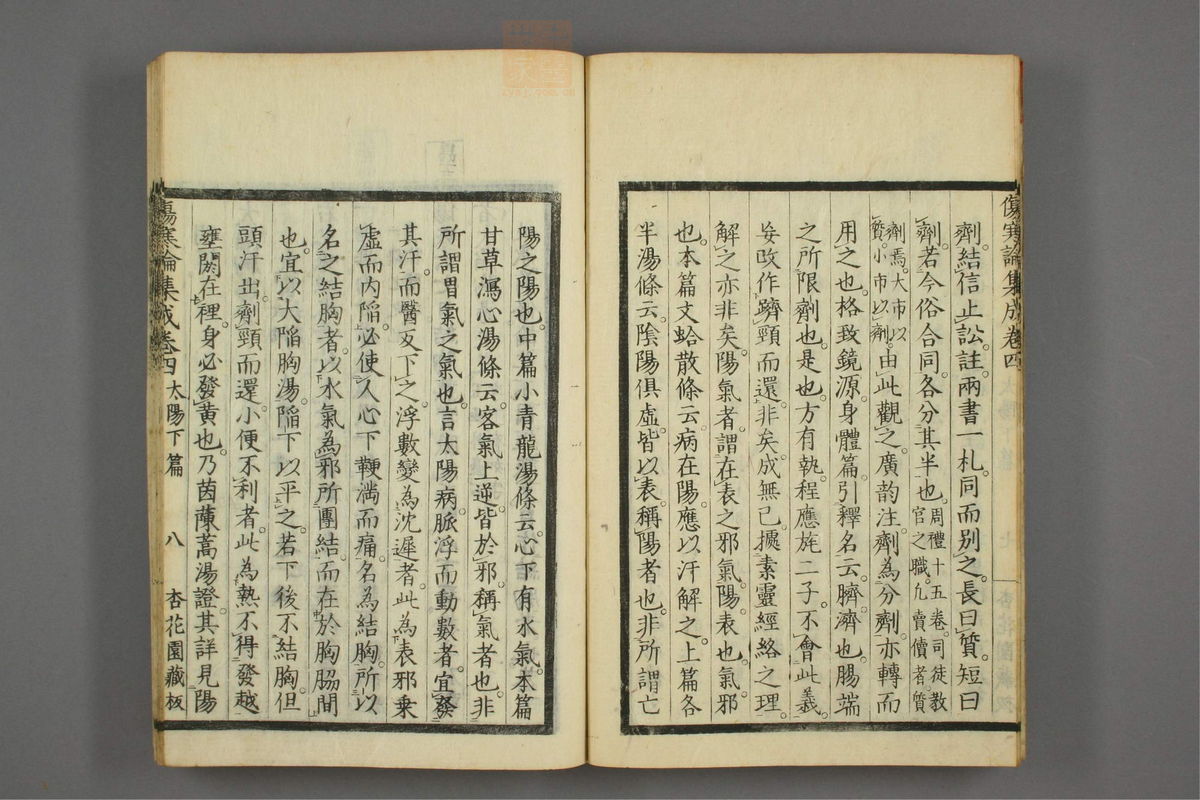 傷寒論集成卷四
劑。結信止訟。註。兩書一札。同而別之。長曰質。短曰
劑。若今俗合同。各分其半也。周禮十五卷。司徒教官之職。凡賣儥者質
劑焉。大市以質。小市以劑。由此觀之。廣韵注。劑為分劑。亦轉而
用之也。格致鏡源。身體篇。引釋名云。臍濟也。腸端
之所限劑也。是也。方有執。程應旄二子。不會此義。
妄改作躋頸而還。非矣。成無已據素靈經絡之理。
解之亦非矣。陽氣者。謂在表之邪氣。陽表也。氣邪
也。本篇文蛤散條云。病在陽。應以汗解之。上篇各
半湯條云。陰陽俱虛。皆以表稱陽者也。非所謂亡
陽之陽也。中篇小青龍湯條云。心下有水氣。本篇
甘草瀉心湯條云。客氣上逆。皆於邪稱氣者也。非
所謂胃氣之氣也。言太陽病。脈浮而動數者。宜發
其汗。而醫反下之。浮數變為沈遲者。此為表邪乗
虛而內陷。必使人心下鞕満而痛。名為結胸。所以
名之結胸者。以水氣為邪所團結。而在於胸脇間
也。宜以大陷胸湯。陷下以平之。若下後不結胸。但
頭汗出。劑頸而還。小便不利者。此為熱不得發越
壅閼在裡。身必發黃也。乃茵蔯蒿湯證。其詳見陽
傷寒論集成卷四 太陽下篇 八 杏花園藏板